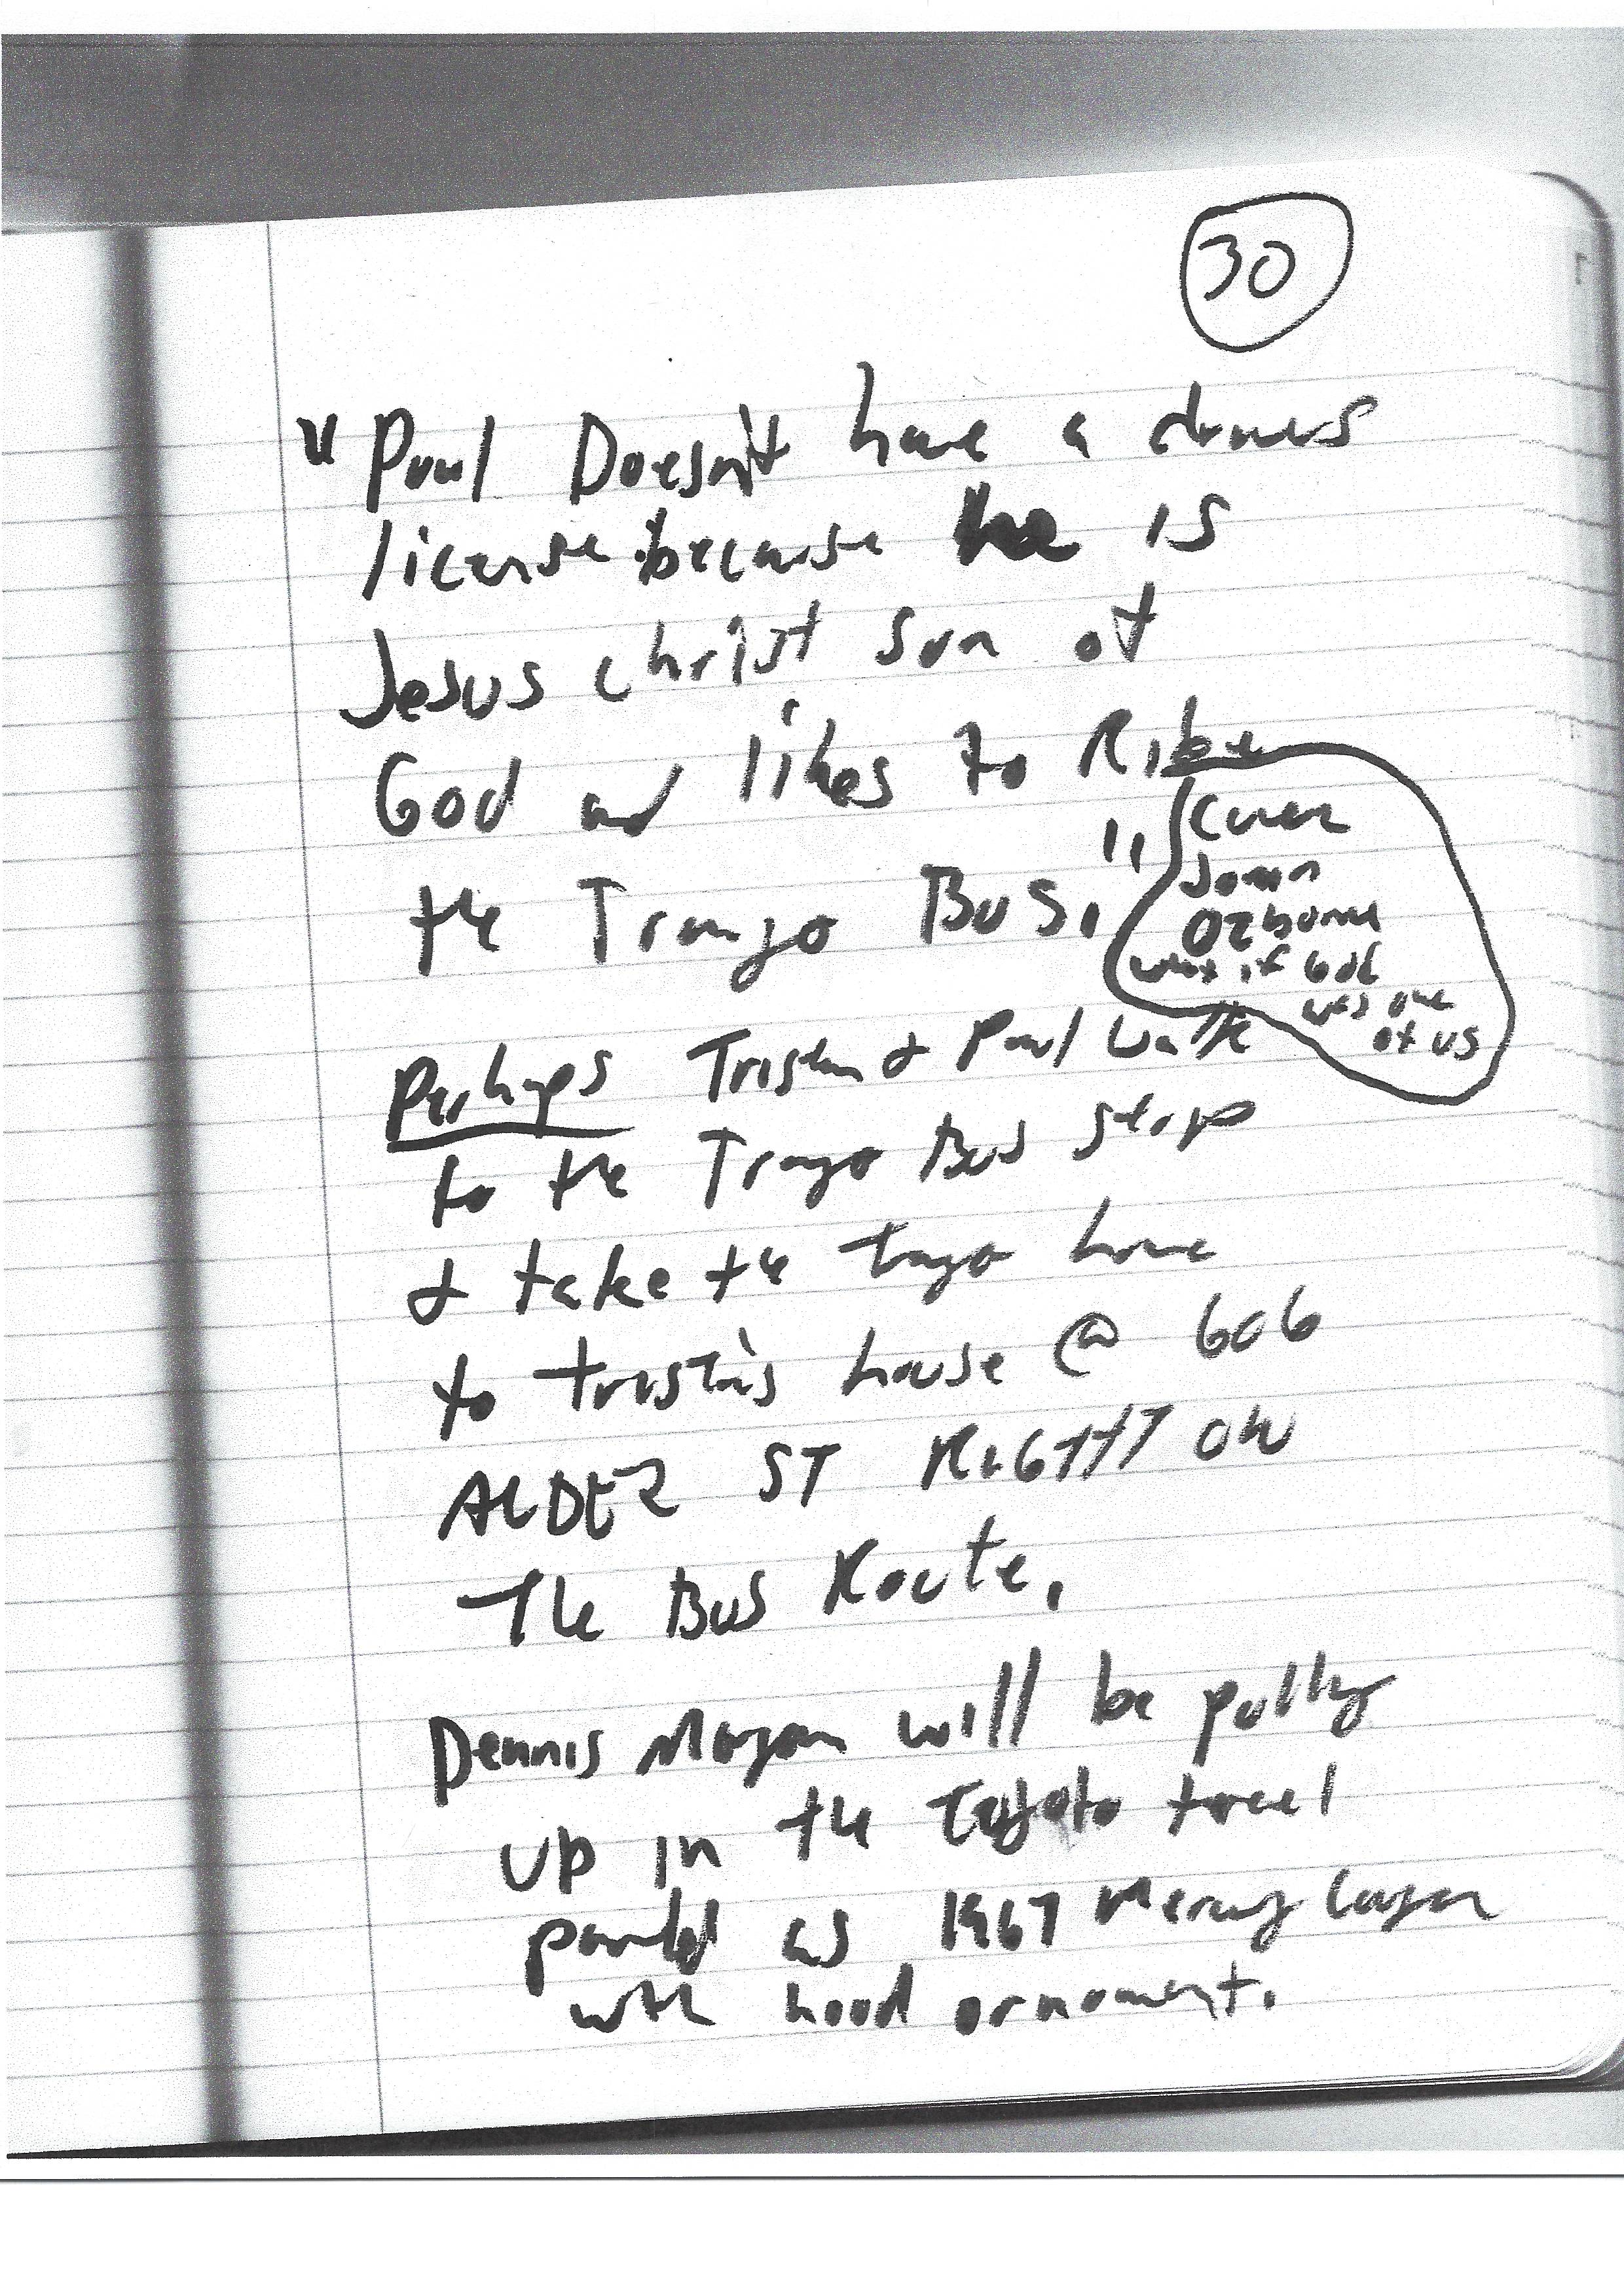 30
"Paul Doesn't have a drivers
license because he is
Jesus christ son of
God and likes to Ride
the Trango Bus."
Cover
Joann
Ozborne
what if God
was one
of us
Perhaps Tristan & Paul walk
to the Trango Bus stop
& take the Trango home
to tristan's house @ 606
ALDER ST RIGHT ON
The Bus Route.
Dennis Morgan will be pulling
up in the Toyota
painted as 1967 Mercury Cougar
with hood ornament.